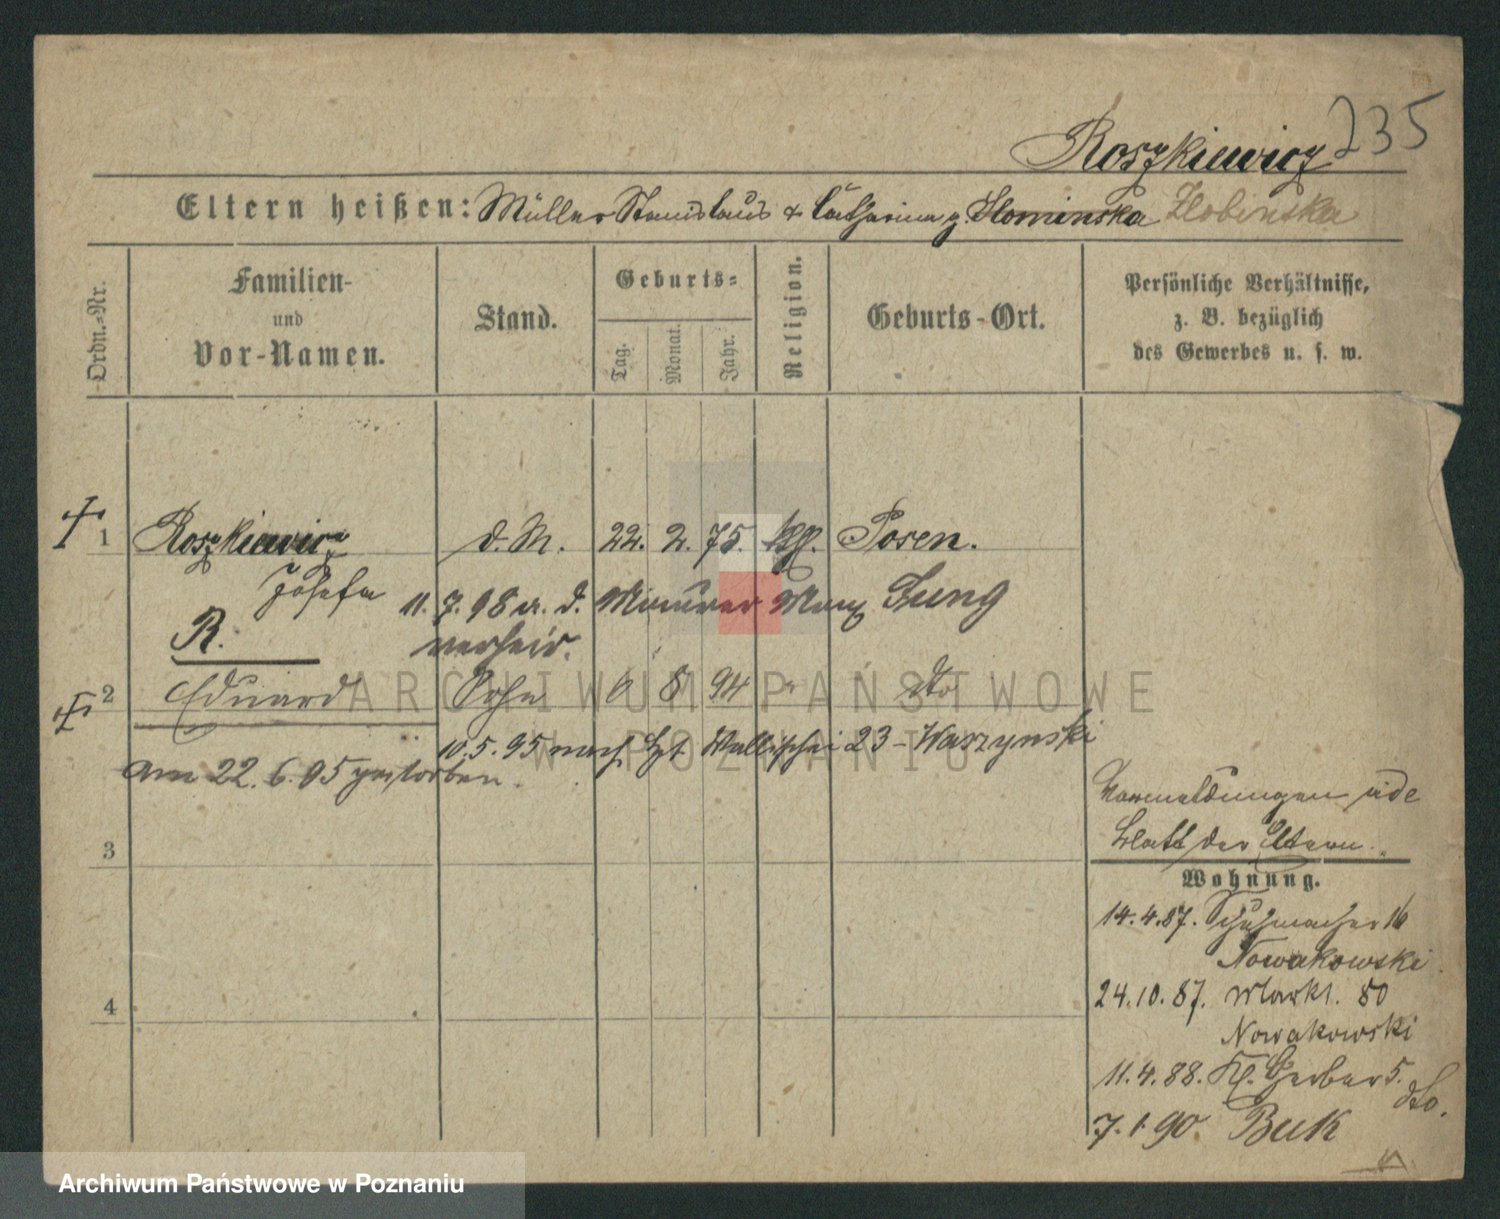 235
Roszkiewicz
Eltern heißen: Müller Stanislaus & Catharina g. Slominska Zlobinska
Ordn.-Nr.
Familien-
und
Vor-Namen.
Stand.
Geburts-
Tag.
Monat.
Jahr.
Religion.
Geburts-Ort.
Persönliche Verhältnisse,
z. B. bezüglich
des Gewerbes u. s. w.
1 Roszkiewicz d. M. 22. 2. 75. kath. Posen.
Josefa 11. 7. 98 a. d. Maurer Max Jung
R. verheir.
2 Eduard Sohn 6 8 94 " dto
10. 5. 95 nach Wallischei 23 - Waszynski
am 22. 6. 95 gestorben.
Vormeldungen
Blatt der Eltern.
3
Wohnung.
14. 4. 87. Schuhmacher 16
Nowakowski
24. 10. 87. Markt. 80
Nowakowski
4
11. 4. 88. Kl. Gerber 5.
dto.
7. 1. 90 Buk
ARCHIWUM PAŃSTWOWE
W POZNANIU
Archiwum Państwowe w Poznaniu